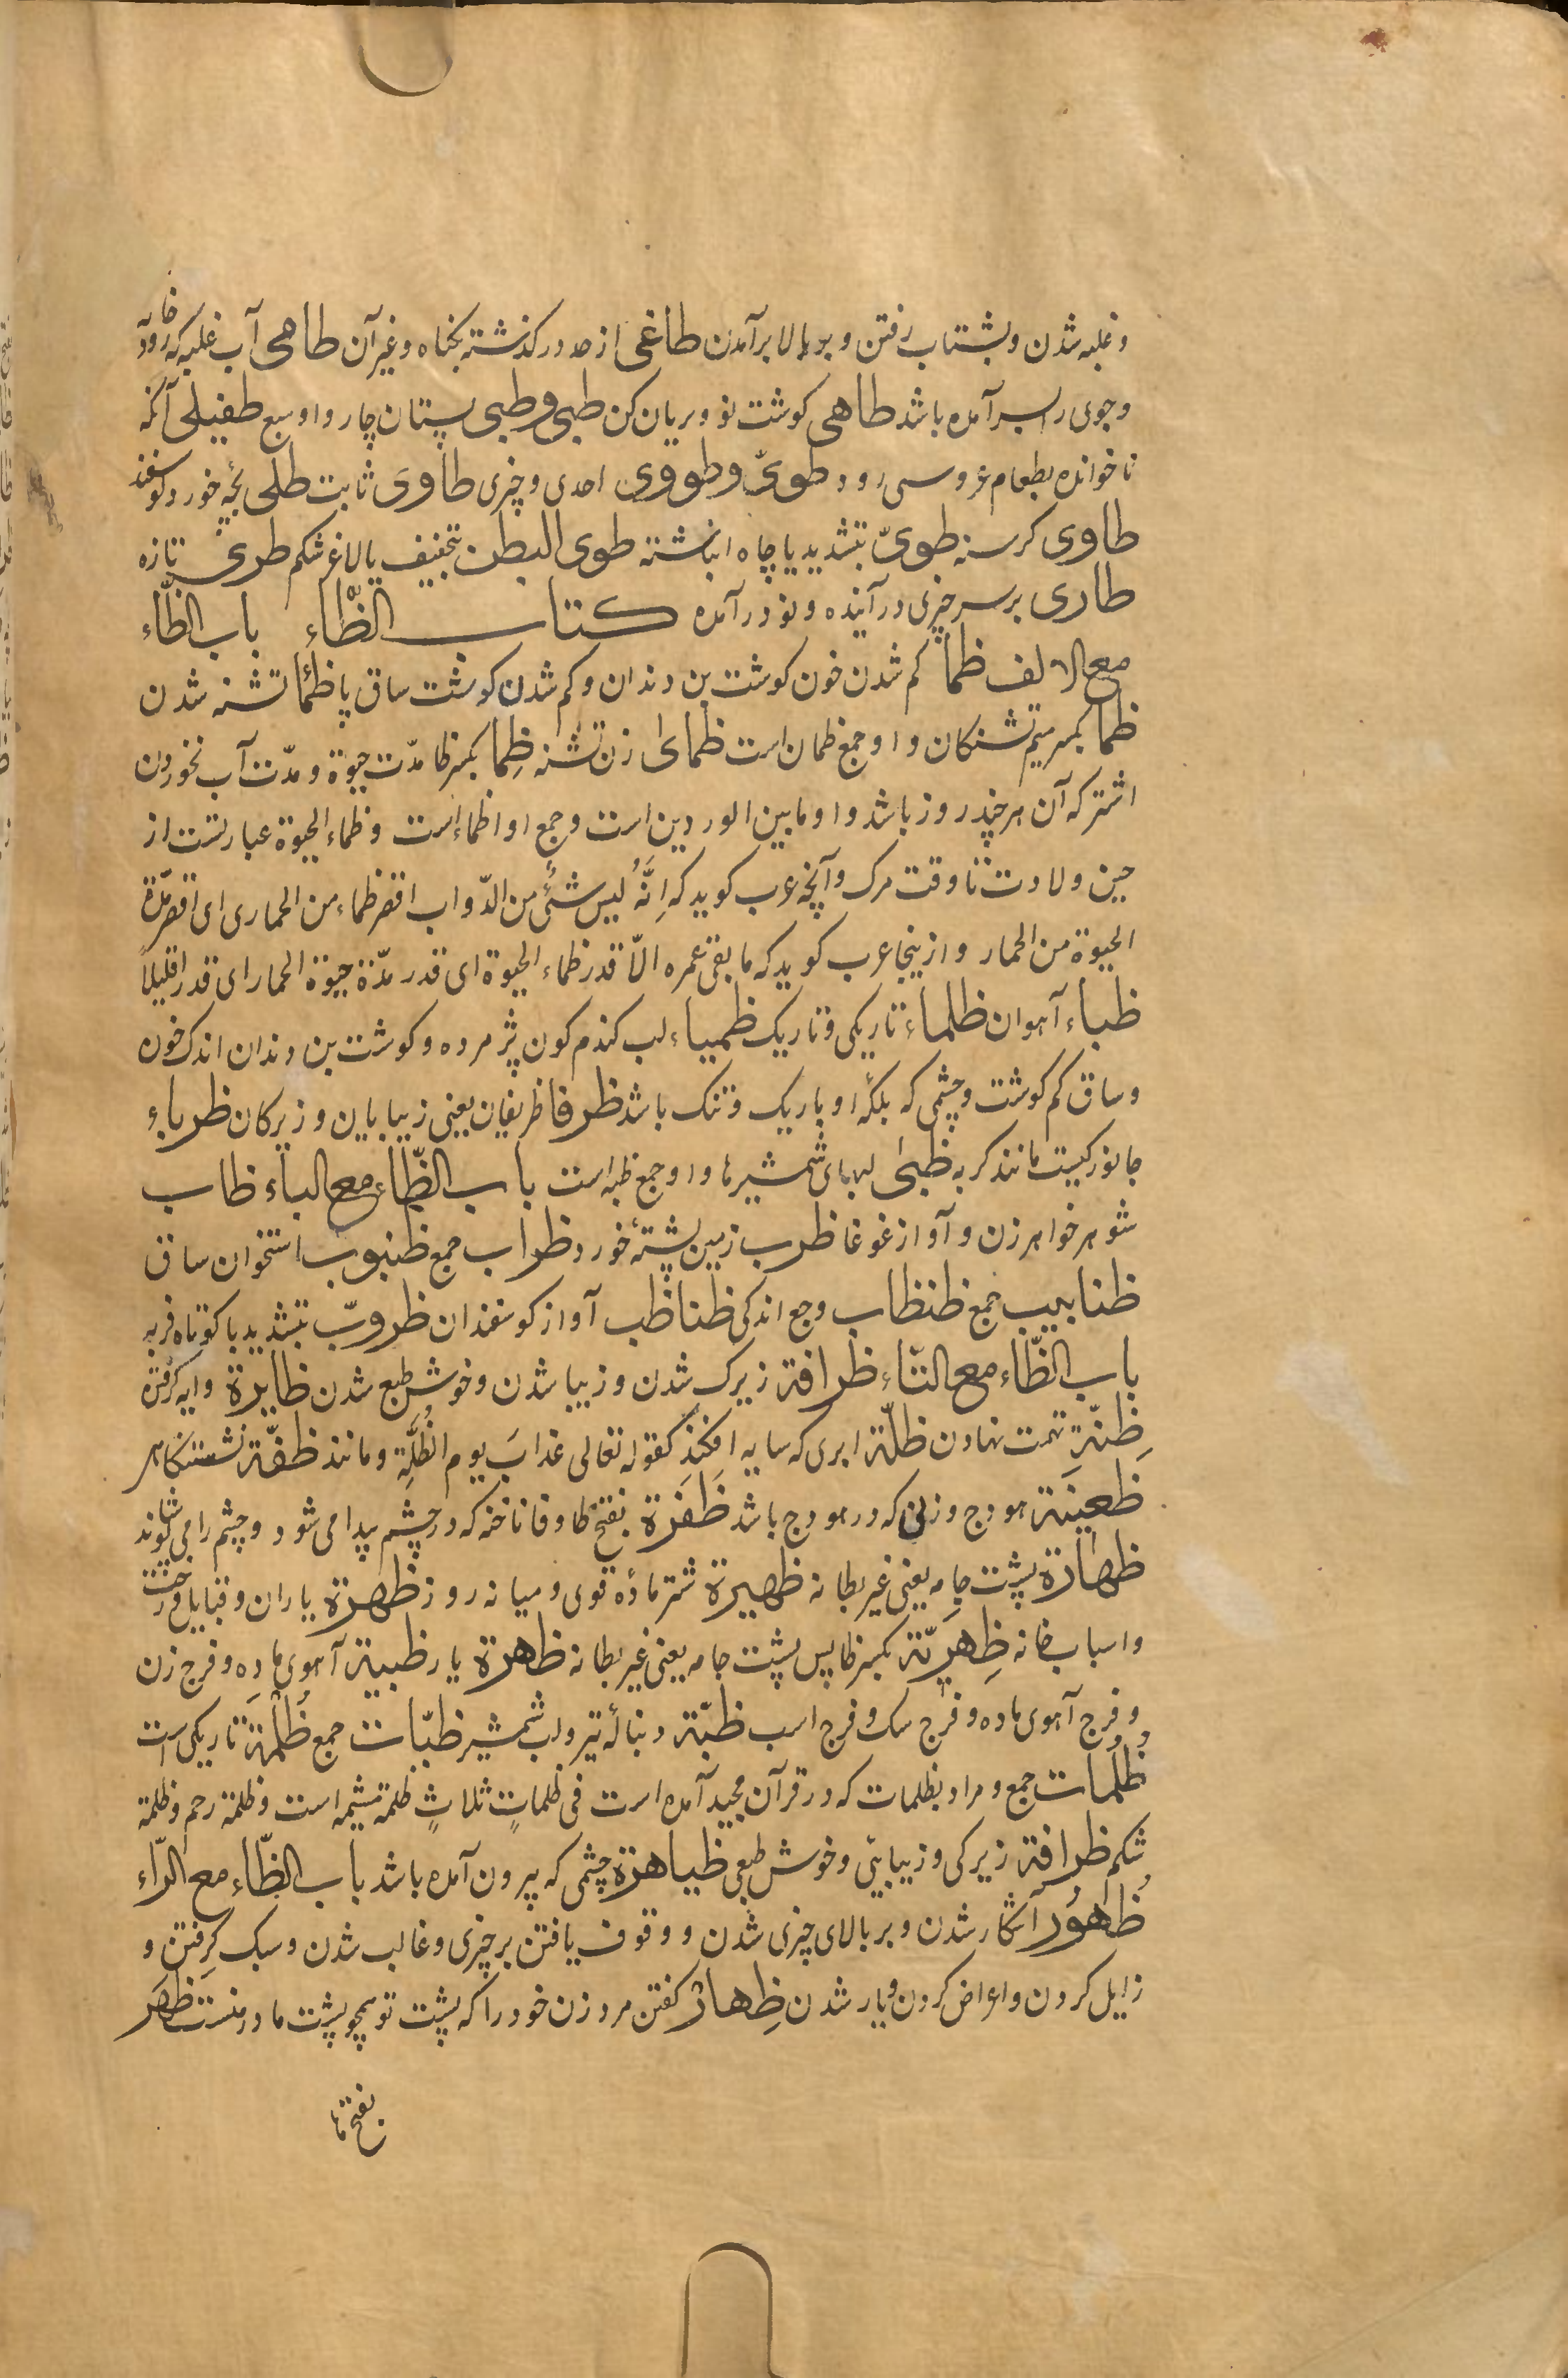 و غلبه شدن و بشتاب رفتن و بر بالا برآمدن طاغی از حد درکذشته بکناه و غیر آن طاهی آب غلبه که رود خانه
و جوی را سر آمده باشد طاهی کوشت نو و بریان کن طبی و طبی پستان چاروا و سبع طفیلی آنکه
ناخوانده بطعام عروسی رود طویّ و طووی احدی و چیزی طاوی ثابت طلی بچهٔ خورد کوسفند
طاوی کرسنه طویّ بتشدید یا چاه انباشته طوی البطن بتخفیف یا لاغر شکم طریّ تازه
طاری بر سر چیزی درآینده و نو درآمده کتاب الظّاء باب الظّاء
مع الالف ظما کم شدن خون کوشت بن دندان و کم شدن کوشت ساق پا ظمأ تشنه شدن
ظما بکسر میم تشنکان و او جمع ظمان است ظمای زن تشنه ظِما بکسر ظا مدّت حیوة و مدّت آب نخوردن
اشتر که آن هر چند روز باشد و او ما بین الوردین است و جمع او اظماء است و ظماء الحیوة عبارتست از
حین ولادت تا وقت مرک و آنچه عرب کوید که اِنَّهُ لیس شئٌ من الدّواب اقصر ظماء من الحماری ای اقصر مدّة
الحیوة من الحمار و ازینجا عرب کوید که ما بقی عمره الّا قدر ظماء الحیوة ای قدر مدّة حیوة الحمار ای قدرا قلیلاً
ظباء آهوان ظلماء تاریکی و تاریک ظمیاء لب کندم کون پژمرده و کوشت بن دندان اندک خون
و ساق کم کوشت و چشمی که پلکهٔ او باریک و تنک باشد ظرفا ظریفان یعنی زیبایان و زیرکان ظرباء
جانورکیست مانند کربه ظبیٰ لبهای شمشیرها و او جمع ظبه است باب الظّاء مع الباء ظاب
شوهر خواهر زن و آواز غوغا ظرب زمین پشتهٔ خورد ظراب جمع ظنبوب استخوان ساق
ظنابیب جمع ظنظاب وجع اندکی ظناظب آواز کوسفندان ظروبّ بتشدید با کوتاه فربه
باب الظّاء مع التّاء ظرافة زیرک شدن و زیبا شدن و خوش طبع شدن ظایرة دایه کرفتن
ظِنّة تهمت نهادن ظلّة ابری که سایه افکند کقوله تعالی عذابَ یوم الظُّلّةِ و مانند ظفّة نشستنکاه
ظعینَة هودج و زنی که در هودج باشد ظَفَرَة بفتح ظا و فا ناخنه که در چشم پیدا می شود و چشم را می پوشاند
ظهارة پشت جامه یعنی غیر بطانه ظهیرة شتر مادهٔ قوی و میانه روز ظهرة یاران و قبایل و رخت
و اسباب خانه ظِهریّة بکسر ظا پس پشت جامه یعنی غیر بطانه ظاهرة یار ظبیة آهوی ماده و فرج زن
و فرج آهوی ماده و فرج سک و فرج اسب ظبّة دنبالهٔ تیر و لب شمشیر ظبّات جمع ظُلْمَة تاریکی است
ظُلُمات جمع و مراد بظلمات که در قرآن مجید آمده است فی ظلماتٍ ثلاثٍ ظلمة مشیمه است و ظلمة رحم و ظلمة
شکم ظرافة زیرکی و زیبایی و خوش طبعی ظیاهرة چشمی که بیرون آمده باشد باب الظّاء مع الرّاء
ظُهُور آشکار شدن و بر بالای چیزی شدن و وقوف یافتن بر چیزی و غالب شدن و سبک کرفتن و
زایل کردن و اعراض کردن و یار شدن ظِهار کفتن مرد زن خود را که پشت تو همچو پشت مادر منست ظَهَر
بفتح ها